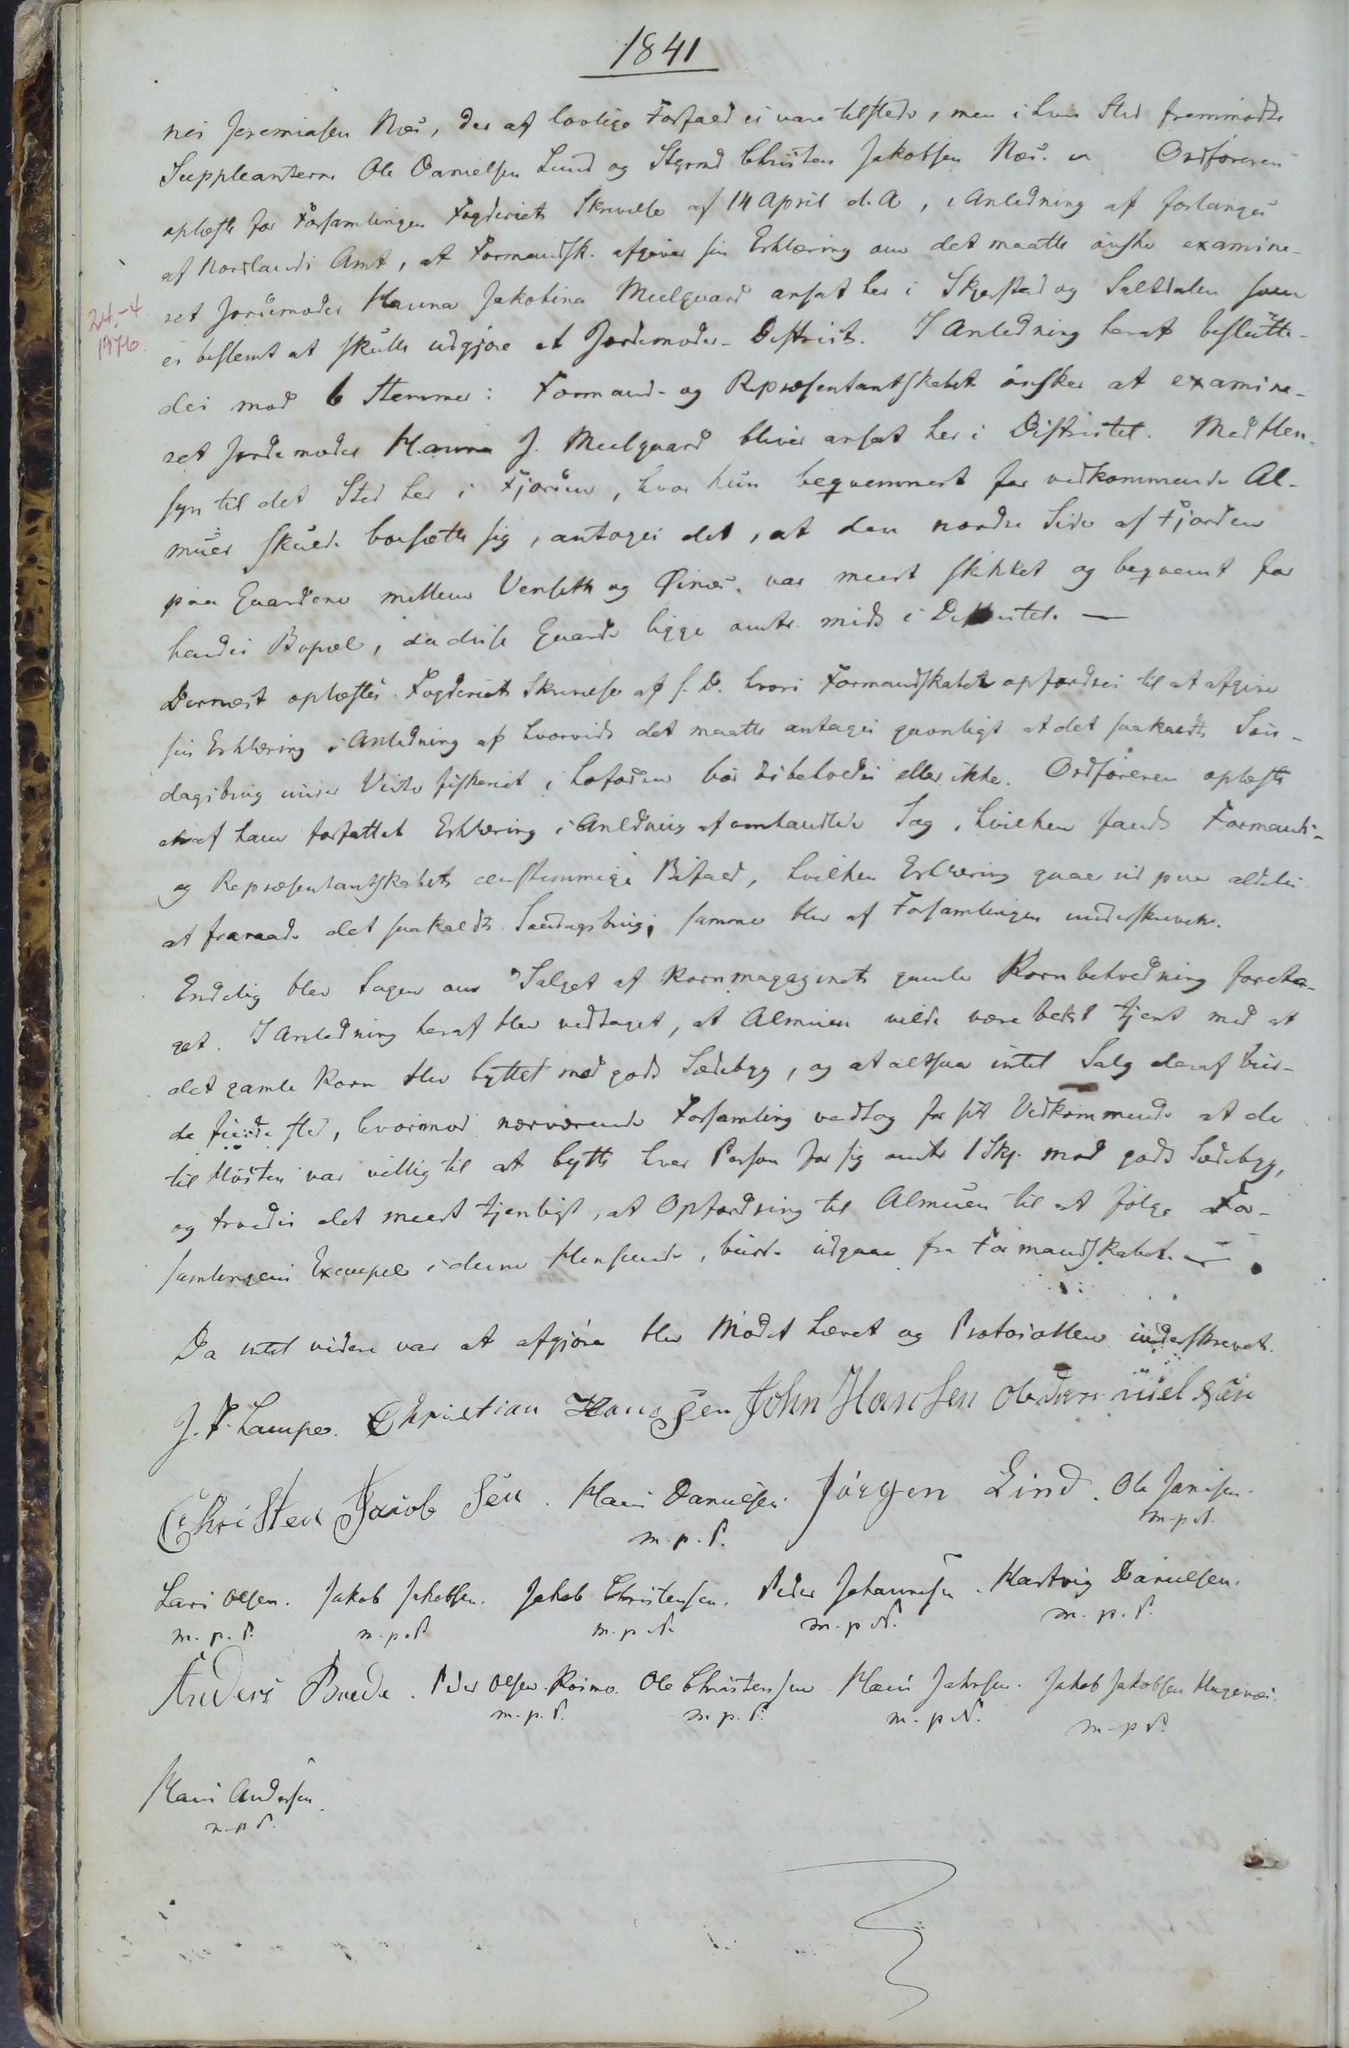 1841
nes Jeremiasen Næs, der af lovlige Forfald ei vare tilstede, men i hvis Sted fremmødte
Suppleanterne Ole Danielsen Lund og Styrmd Christen Jakobsen Næs. Ordføreren
oplæste for Forsamlingen Fogderiets Skrivelse af 14 April d.A, i Anledning af forlanges
af Nordlands Amt, at Formandsk. afgiver sin Erklæring om det maatte ønske examine-
ret Jordemoder Hanna Jakobina Meelgaard ansat her i Skjerstad og Saltdalen som
er bestemt at skulle udgjøre et Jordemoder-District. I Anledning heraf beslutte-
des mod 6 Stemmer: Formand- og Repræsentantskabet ønsker at examine-
ret Jordemoder Hanna J. Meelgaard bliver ansat her i Districtet. Med Hen-
syn til det Sted her i Fjorden, hvor hun beqvemmest for vedkommende Al-
mue skulde bosætte sig, antoges det, at den nordre Side af Fjorden
paa Gaardene mellem Venseth og Øinæs. var meest skikket og beqvemt for
hendes Bopæl, da disse Gaarde ligge omtr. midt i Districtet. —
Dernæst oplæstes Fogderiets Skrivelse af s. D. hvori Formandskabet opfordres til at afgive
sin Erklæring i Anledning af hvorvidt det maatte antages gavnligt at det saakaldte Søn-
dagsbrug under Vinterfiskeriet i Lofoden bør bibeholdes eller ikke. Ordføreren oplæste
en af ham forfattet Erklæring i Anledning af omhandlede Sag, hvilken fandt Formands-
og Repræsentantskabets eenstemmige Bifald, hvilken Erklæring gaar ud paa aldeles
at fraraade det saakaldte Søndagsbrug; samme blev af Forsamlingen underskreven.
Endelig blev Sagen om Salget af Kornmagazinets gamle Kornbeholdning foreta-
get. I Anledning heraf blev vedtaget, at Almuen vilde være bedst tjent med at
det gamle Korn blev byttet mod godt Sædebyg, og at altsaa intet Salg deraf bur-
de finde sted, hvorimod nærværende Forsamling vedtog for sit Vedkommende at de
til Høsten var villig til at bytte hver Person for sig omtr 1 Skj. mod godt Sædebyg,
og troedes det meest tjenligt, at Opfordring til Almuen til at følge For-
samlingens Exempel i denne Henseende, burde udgaae fra Formandskabet. —
Da intet videre var at afgjøre blev Mødet hævet og Protocollen underskrevet.
J. F. Lampe. Christian Hansen John Hansen Ole Danielsen
Christen Jacobsen. Hans Danielsen. Jørgen Lind. Ole Jensen.
m.p.P. m.p.P.
Lars Olsen. Jakob Jakobsen. Jakob Christensen. Peder Johannesen. Hartvig Danielsen.
m.p.P. m.p.P. m.p.P. m.p.P. m.p.P.
Anders Brede. Peder Olsen Kosmo. Ole Christensen Hans Jakobsen. Jakob Jakobsen
m.p.P. m.p.P. m.p.P. m.p.P.
Hans Andersen
m.p.P.
24.-4
1976